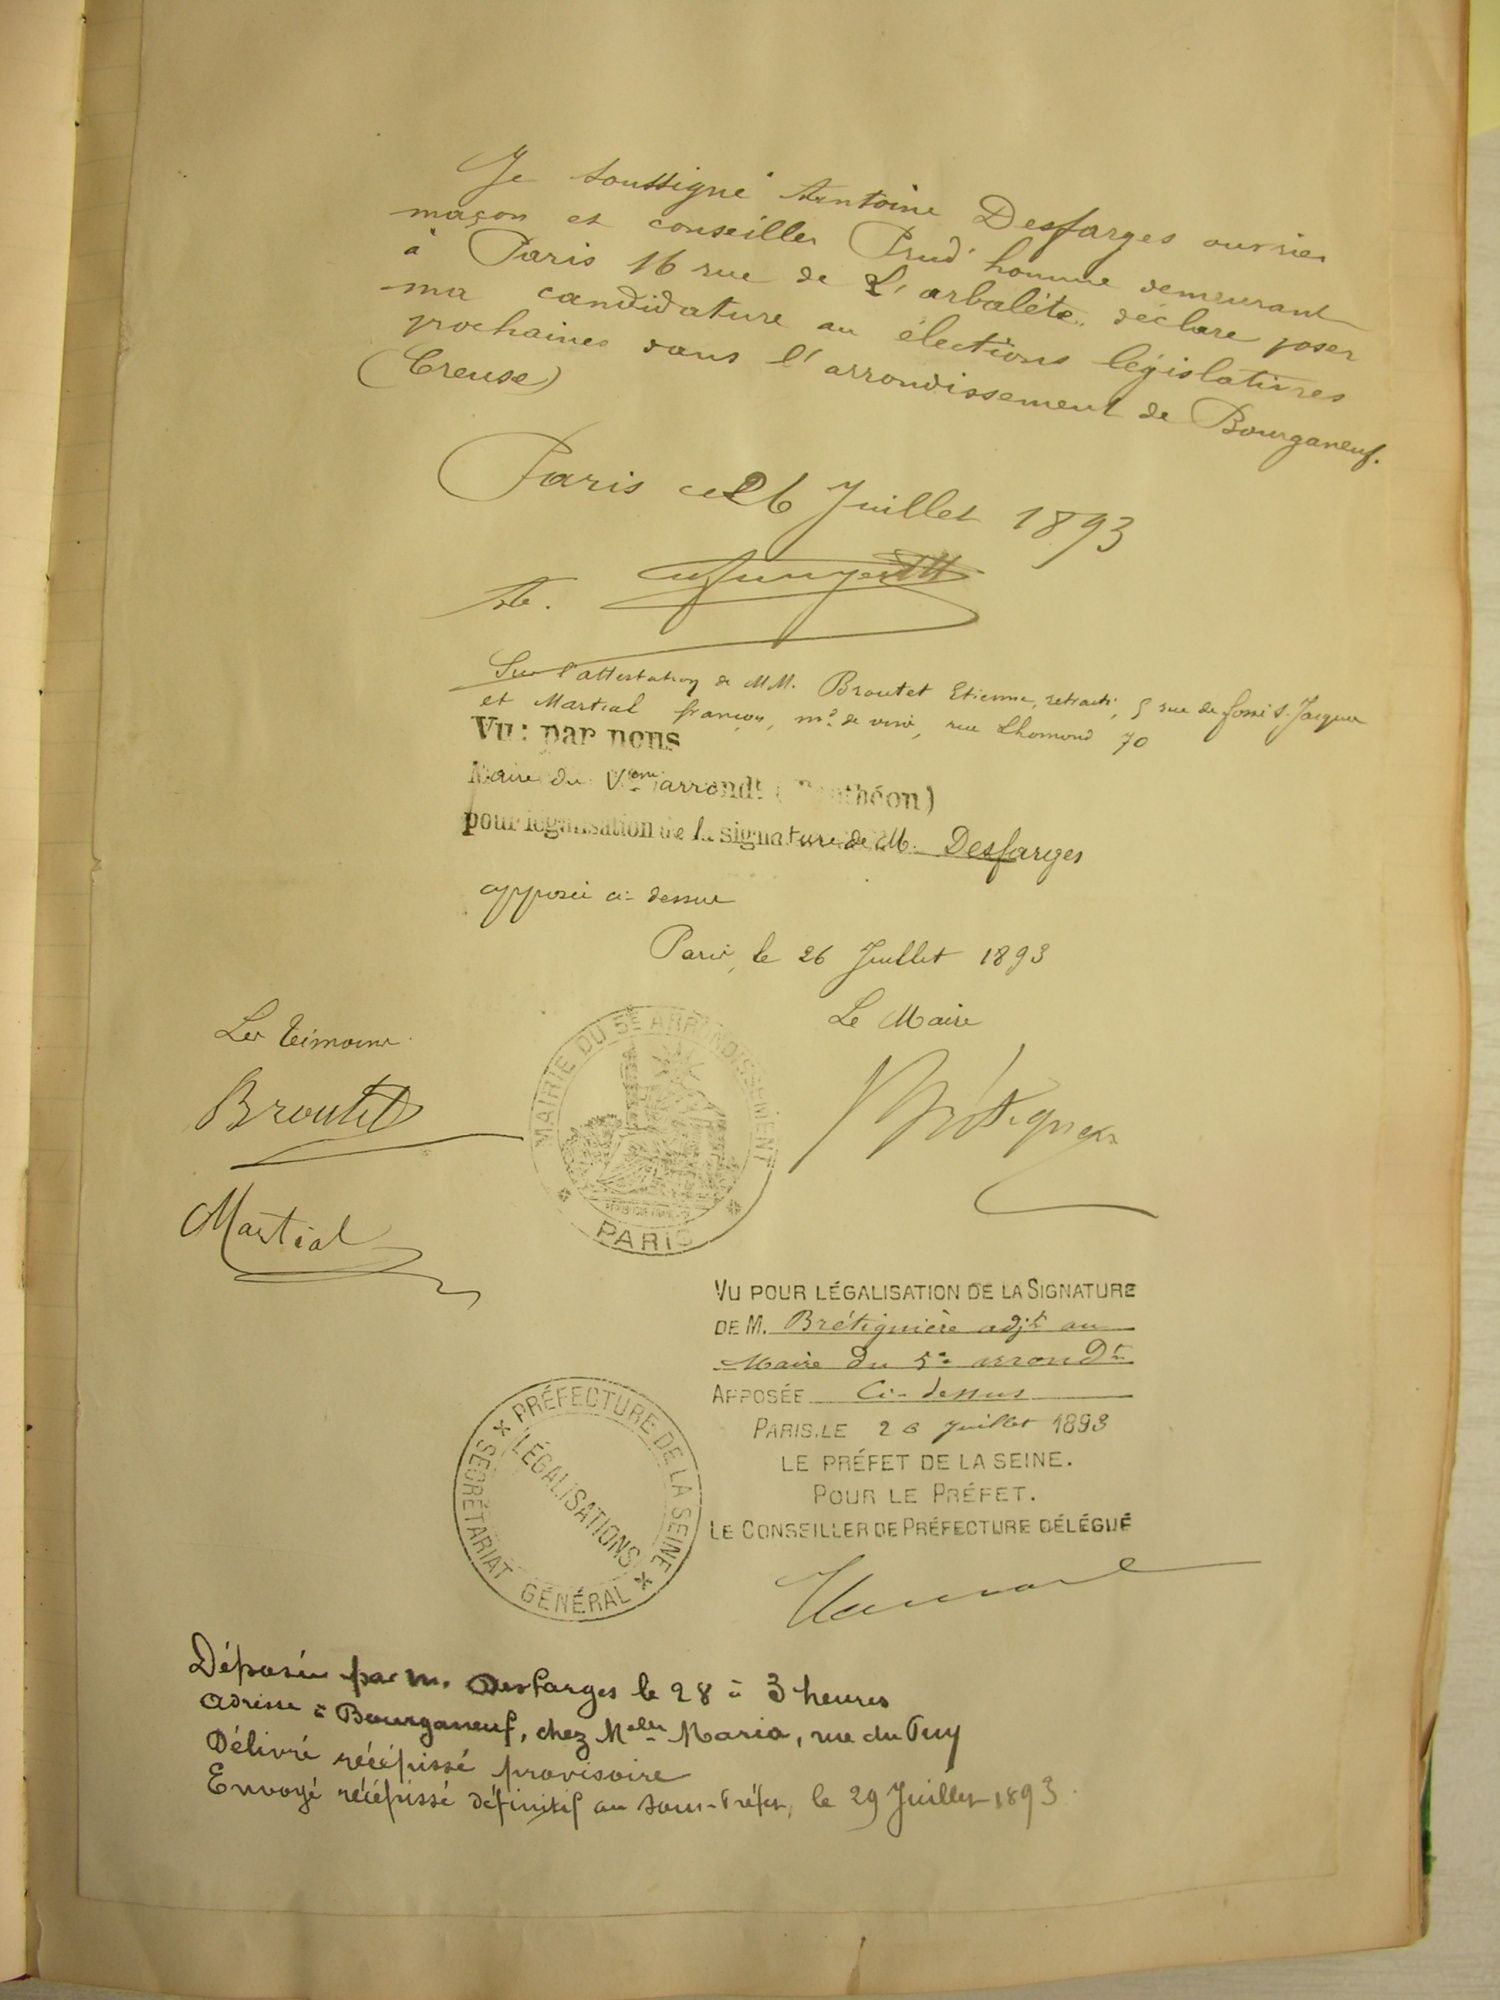 Je soussigné Antoine Desfarges ouvrier
maçon et conseiller Prud'homme demeurant
à Paris 16 rue de L'arbalète, déclare poser
ma candidature au élections législatives
prochaines dans l'arrondissement de Bourganeuf.
(Creuse)
Paris ce 26 Juillet 1893
Sur l'attestation de MM. Broutet Etienne, retraité, 5 rue des fossés St Jacques
et Martial françois, md de vins, rue Lhomond 70
Vu: par nous
Maire du Vème arrondt (Panthéon)
pour légalisation de la signature de M. Desfarges
apposée ci-dessus
Paris, le 26 Juillet 1893
Le Maire
Les témoins
Broutet
Martial
MAIRIE DU 5E ARRONDISSEMENT
PARIS
VU POUR LÉGALISATION DE LA SIGNATURE
DE M. Brétignière adjt au
Maire du 5e arrondt
APPOSÉE Ci-dessus
PARIS, LE 26 Juillet 1893
LE PRÉFET DE LA SEINE.
POUR LE PRÉFET.
LE CONSEILLER DE PRÉFECTURE DÉLÉGUÉ
PRÉFECTURE DE LA SEINE
LÉGALISATIONS
SECRÉTARIAT GÉNÉRAL
Déposée par M. Desfarges le 28 à 3 heures
adresse à Bourganeuf, chez Melles Maria, rue du Puy
Délivré récépissé provisoire
Envoyé récépissé définitif au Sous-Préfet, le 29 Juillet 1893.